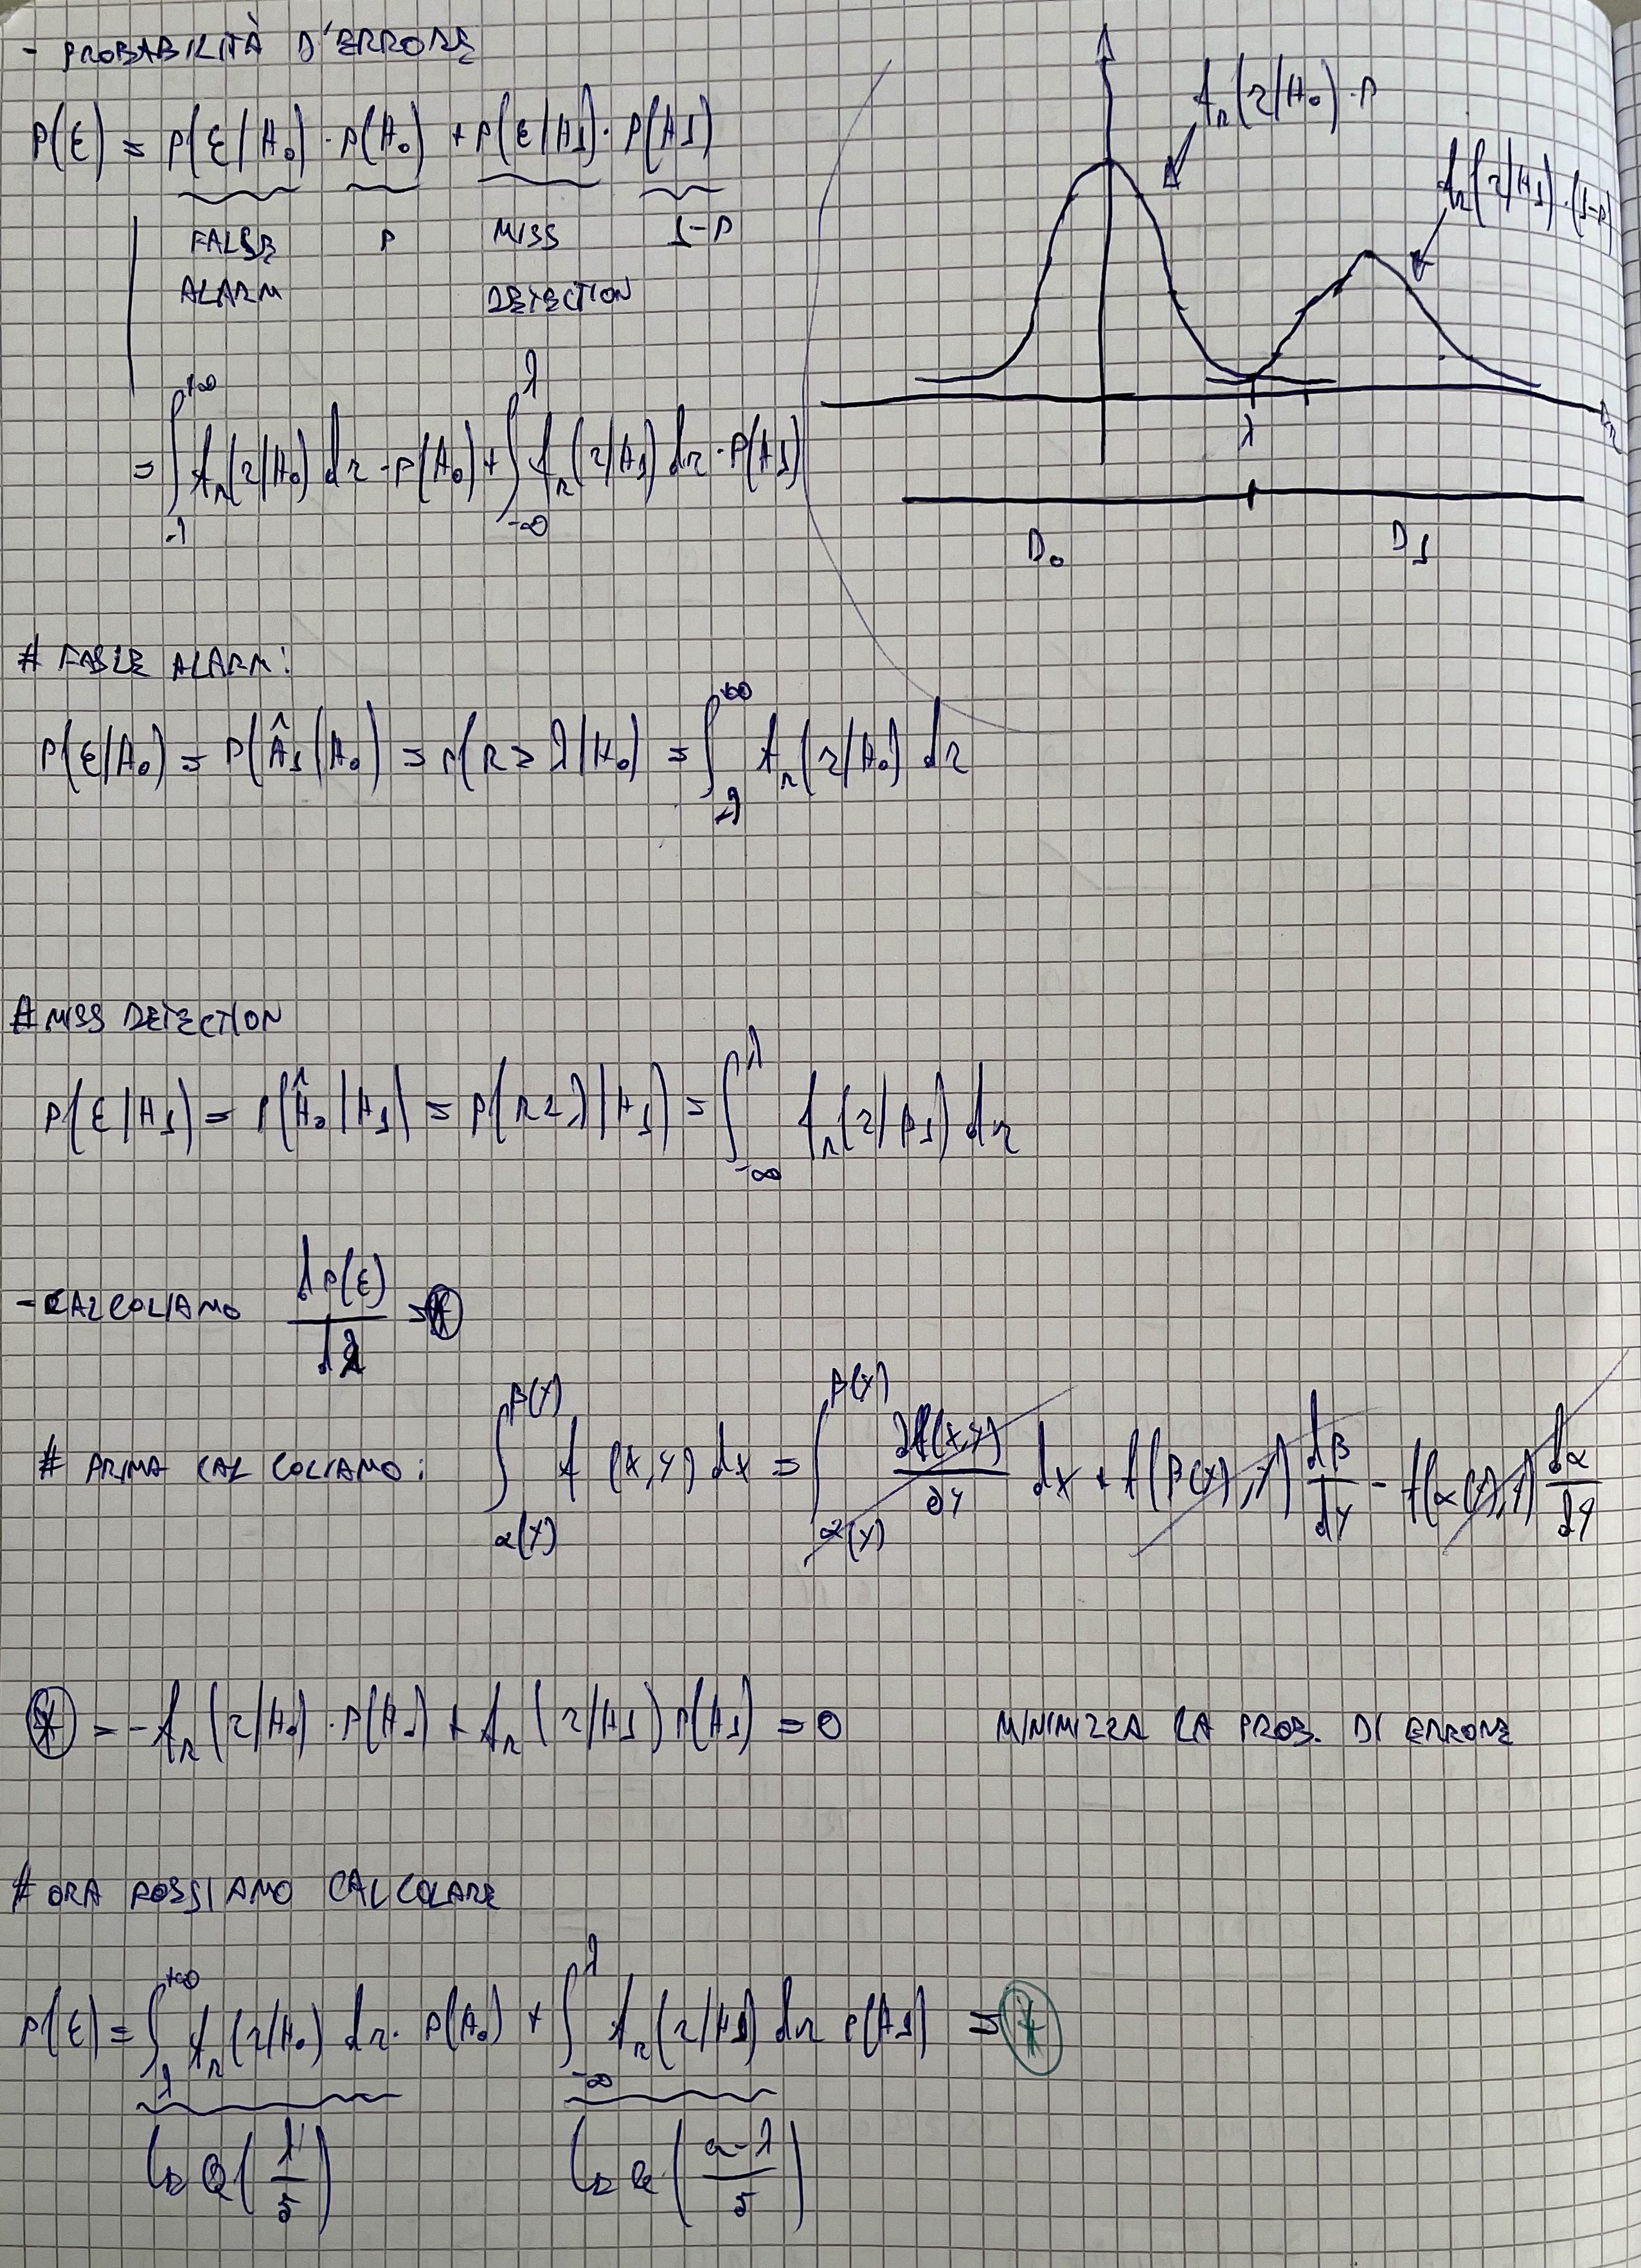 - PROBABILITÀ D'ERRORE
P(ε) = P(ε/H₀) · P(H₀) + P(ε/H1) · P(H1)
FALSE P MISS 1-P
ALARM DETECTION
= ∫_λ^{+∞} f_R(r/H₀) dr · P(H₀) + ∫_{-∞}^λ f_R(r/H1) dr · P(H1)
f_R(r/H₀) · P
f_R(r/H1) · (1-P)
λ
R
D₀ D1
# FASLE ALARM:
P(ε/H₀) = P(Ĥ1/H₀) = P(R ≥ λ/H₀) = ∫_λ^{+∞} f_R(r/H₀) dr
# MISS DETECTION
P(ε/H1) = P(Ĥ₀/H1) = P(R < λ/H1) = ∫_{-∞}^λ f_R(r/H1) dr
- CALCOLIAMO dP(ε)/dλ = ⊛
# PRIMA CALCOLIAMO: ∫_{α(y)}^{β(y)} f(x,y) dx = ∫_{α(y)}^{β(y)} ∂f(x,y)/∂y dx + f(β(y),y) dβ/dy - f(α(y),y) dα/dy
⊛ = - f_R(r/H₀) · P(H₀) + f_R(r/H1) P(H1) = 0 MINIMIZZA LA PROB. DI ERRORE
# ORA POSSIAMO CALCOLARE
P(ε) = ∫_λ^{+∞} f_R(r/H₀) dr · P(H₀) + ∫_{-∞}^λ f_R(r/H1) dr P(H1) = ⊛
↳ Q(λ/σ) ↳ Q((a-λ)/σ)